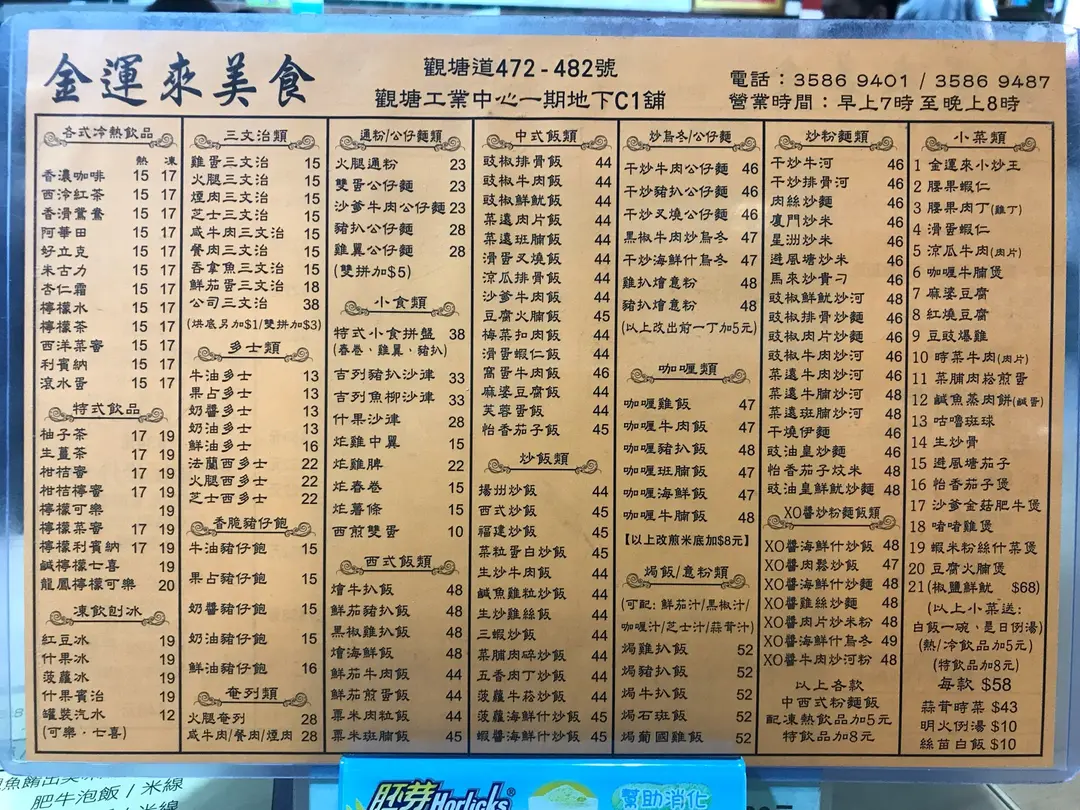 金運來美食
觀塘道472-482號
觀塘工業中心一期地下C1舖
電話：3586 9401 / 3586 9487
營業時間：早上7時至晚上8時
各式冷熱飲品
熱 凍
香濃咖啡 15 17
西泠紅茶 15 17
香滑鴛鴦 15 17
阿華田 15 17
好立克 15 17
朱古力 15 17
杏仁霜 15 17
檸檬水 15 17
檸檬茶 15 17
西洋菜蜜 15 17
利賓納 15 17
滾水蛋 15 17
特式飲品
柚子茶 17 19
生薑茶 17 19
柑桔蜜 17 19
柑桔檸蜜 17 19
檸檬可樂 19
檸檬菜蜜 17 19
檸檬利賓納 17 19
鹹檸檬七喜 19
龍鳳檸檬可樂 20
凍飲刨冰
紅豆冰 19
什果冰 19
菠蘿冰 19
什果賓治 19
罐裝汽水 12
(可樂．七喜)
三文治類
雞蛋三文治 15
火腿三文治 15
煙肉三文治 15
芝士三文治 15
咸牛肉三文治 15
餐肉三文治 15
吞拿魚三文治 15
鮮茄蛋三文治 18
公司三文治 38
(烘底另加$1/雙拼加$3)
多士類
牛油多士 13
果占多士 13
奶醬多士 13
奶油多士 13
鮮油多士 16
法蘭西多士 22
火腿西多士 22
芝士西多士 22
香脆豬仔飽
牛油豬仔飽 15
果占豬仔飽 15
奶醬豬仔飽 15
奶油豬仔飽 15
鮮油豬仔飽 16
奄列類
火腿奄列 28
咸牛肉/餐肉/煙肉 28
通粉/公仔麵類
火腿通粉 23
雙蛋公仔麵 23
沙爹牛肉公仔麵 23
豬扒公仔麵 28
雞翼公仔麵 28
(雙拼加$5)
小食類
特式小食拼盤 38
(春卷、雞翼、豬扒)
吉列豬扒沙律 33
吉列魚柳沙律 33
什果沙律 28
炸雞中翼 15
炸雞髀 22
炸春卷 15
炸薯條 15
西煎雙蛋 10
西式飯類
燴牛扒飯 48
鮮茄豬扒飯 48
黑椒雞扒飯 48
燴海鮮飯 48
鮮茄牛肉飯 44
鮮茄煎蛋飯 44
粟米肉粒飯 44
粟米斑腩飯 45
中式飯類
豉椒排骨飯 44
豉椒牛肉飯 44
豉椒鮮魷飯 44
菜遠肉片飯 44
菜遠班腩飯 44
滑蛋叉燒飯 44
涼瓜排骨飯 44
沙爹牛肉飯 44
豆腐火腩飯 45
梅菜扣肉飯 44
滑蛋蝦仁飯 44
窩蛋牛肉飯 46
麻婆豆腐飯 44
芙蓉蛋飯 44
怡香茄子飯 45
炒飯類
揚州炒飯 44
西式炒飯 44
福建炒飯 44
菜粒蛋白炒飯 44
生炒牛肉飯 44
鹹魚雞粒炒飯 44
生炒雞絲飯 44
三蝦炒飯 44
菜脯肉碎炒飯 44
五香肉丁炒飯 44
菠蘿牛崧炒飯 44
菠蘿海鮮什炒飯 45
蝦醬海鮮什炒飯 45
炒烏冬/公仔麵
干炒牛肉公仔麵 46
干炒豬扒公仔麵 46
干炒叉燒公仔麵 46
黑椒牛肉炒烏冬 46
干炒海鮮什烏冬 47
雞扒燴意粉 48
豬扒燴意粉 48
(以上改出前一丁加5元)
咖喱類
咖喱雞飯 47
咖喱牛肉飯 47
咖喱豬扒飯 48
咖喱斑腩飯 47
咖喱海鮮飯 47
咖喱牛腩飯 48
【以上改煎米底加$8元】
焗飯/意粉類
(可配：鮮茄汁/黑椒汁/
咖喱汁/芝士汁/蒜茸汁)
焗雞扒飯 52
焗豬扒飯 52
焗牛扒飯 52
焗石斑飯 52
焗葡國雞飯 52
炒粉麵類
干炒牛河 46
干炒排骨河 46
肉絲炒麵 46
廈門炒米 46
星洲炒米 46
避風塘炒米 46
馬來炒貴刁 46
豉椒鮮魷炒河 48
豉椒排骨炒麵 46
豉椒肉片炒麵 46
豉椒牛肉炒河 46
菜遠牛肉炒河 46
菜遠牛腩炒河 48
菜遠斑腩炒河 48
干燒伊麵 46
豉油皇炒麵 46
怡香茄子炆米 48
豉油皇鮮魷炒麵 48
XO醬炒粉麵飯類
XO醬海鮮什炒飯 48
XO醬肉鬆炒飯 47
XO醬海鮮什炒麵 48
XO醬雞絲炒麵 48
XO醬肉片炒米粉 48
XO醬海鮮什烏冬 49
XO醬牛肉炒河粉 48
以上各款
中西式炒粉麵飯
配凍熱飲品加5元
特飲品加8元
小菜類
1 金運來小炒王
2 腰果蝦仁
3 腰果肉丁(雞丁)
4 滑蛋蝦仁
5 涼瓜牛肉(肉片)
6 咖喱牛腩煲
7 麻婆豆腐
8 紅燒豆腐
9 豆豉爆雞
10 時菜牛肉(肉片)
11 菜脯肉崧煎蛋
12 鹹魚蒸肉餅(鹹蛋)
13 咕嚕斑球
14 生炒骨
15 避風塘茄子
16 怡香茄子煲
17 沙爹金菇肥牛煲
18 啫啫雞煲
19 蝦米粉絲什菜煲
20 豆腐火腩煲
21(椒鹽鮮魷 $68)
(以上小菜送：
白飯一碗、是日例湯)
(熱/冷飲品加5元)
(特飲品加8元)
每款 $58
蒜茸時菜 $43
明火例湯 $10
絲苗白飯 $10
肥牛泡飯 / 米線
胚芽 Horlicks®
幫助消化